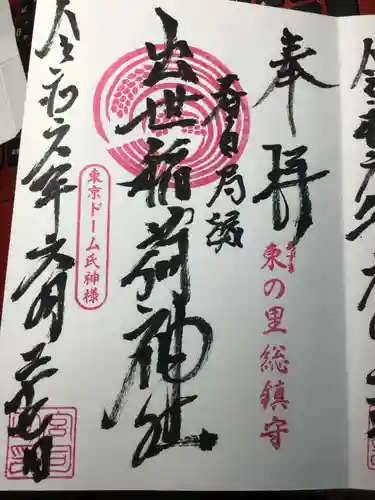 奉拝
東の里総鎮守
あずま
春日局縁
出世稲荷神社
東京ドーム氏神様
令和六年六月二十九日